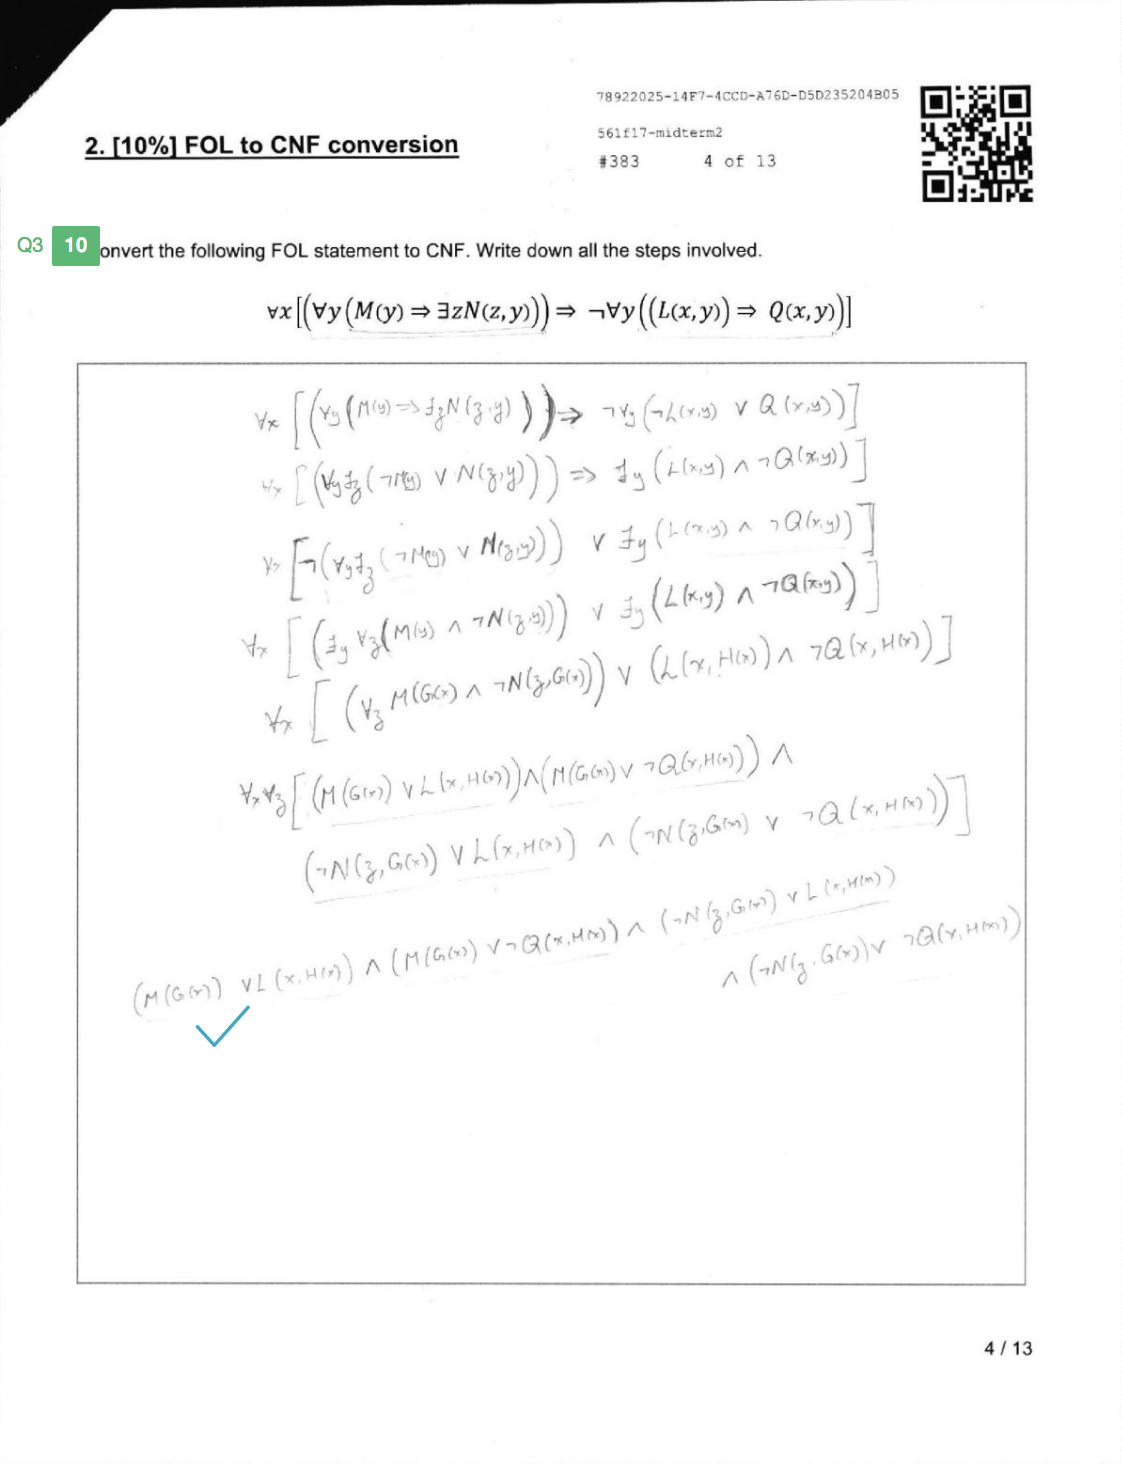 78922025-14F7-4CCD-A76D-D5D235204B05
561f17-midterm2
#383 4 of 13
2. [10%] FOL to CNF conversion
Q3 10 onvert the following FOL statement to CNF. Write down all the steps involved.
∀x[(∀y(M(y) ⇒ ∃zN(z,y))) ⇒ ¬∀y((L(x,y)) ⇒ Q(x,y))]
∀x [(∀y(M(y) => ∃zN(z,y))) => ¬∀y(¬L(x,y) ∨ Q(x,y))]
∀x [(∀y∃z(¬M(y) ∨ N(z,y))) => ∃y(L(x,y) ∧ ¬Q(x,y))]
∀x [¬(∀y∃z(¬M(y) ∨ N(z,y))) ∨ ∃y(L(x,y) ∧ ¬Q(x,y))]
∀x [(∃y ∀z(M(y) ∧ ¬N(z,y))) ∨ ∃y(L(x,y) ∧ ¬Q(x,y))]
∀x [(∀z M(G(x) ∧ ¬N(z,G(x))) ∨ (L(x,H(x)) ∧ ¬Q(x,H(x))]
∀x∀z[(M(G(x)) ∨ L(x,H(x)))∧(M(G(x)) ∨ ¬Q(x,H(x))) ∧
(¬N(z,G(x)) ∨ L(x,H(x)) ∧ (¬N(z,G(x)) ∨ ¬Q(x,H(x)))]
(M(G(x)) ∨ L(x,H(x)) ∧ (M(G(x)) ∨ ¬Q(x,H(x)) ∧ (¬N(z,G(x)) ∨ L(x,H(x)))
∧ (¬N(z,G(x)) ∨ ¬Q(x,H(x)))
4 / 13